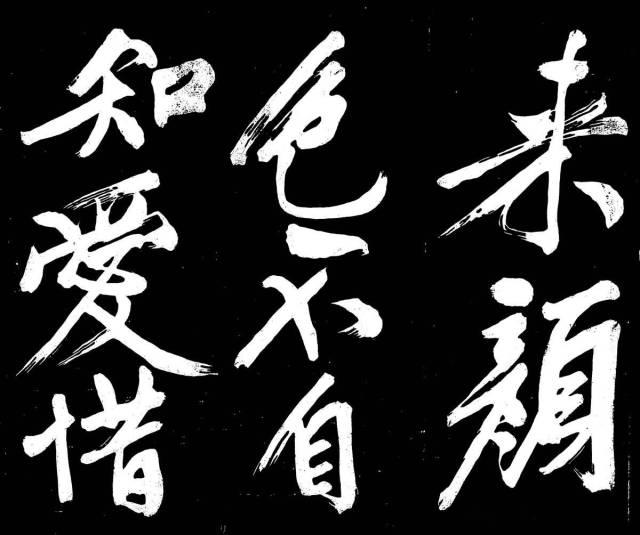 来顏
色不自
知愛惜